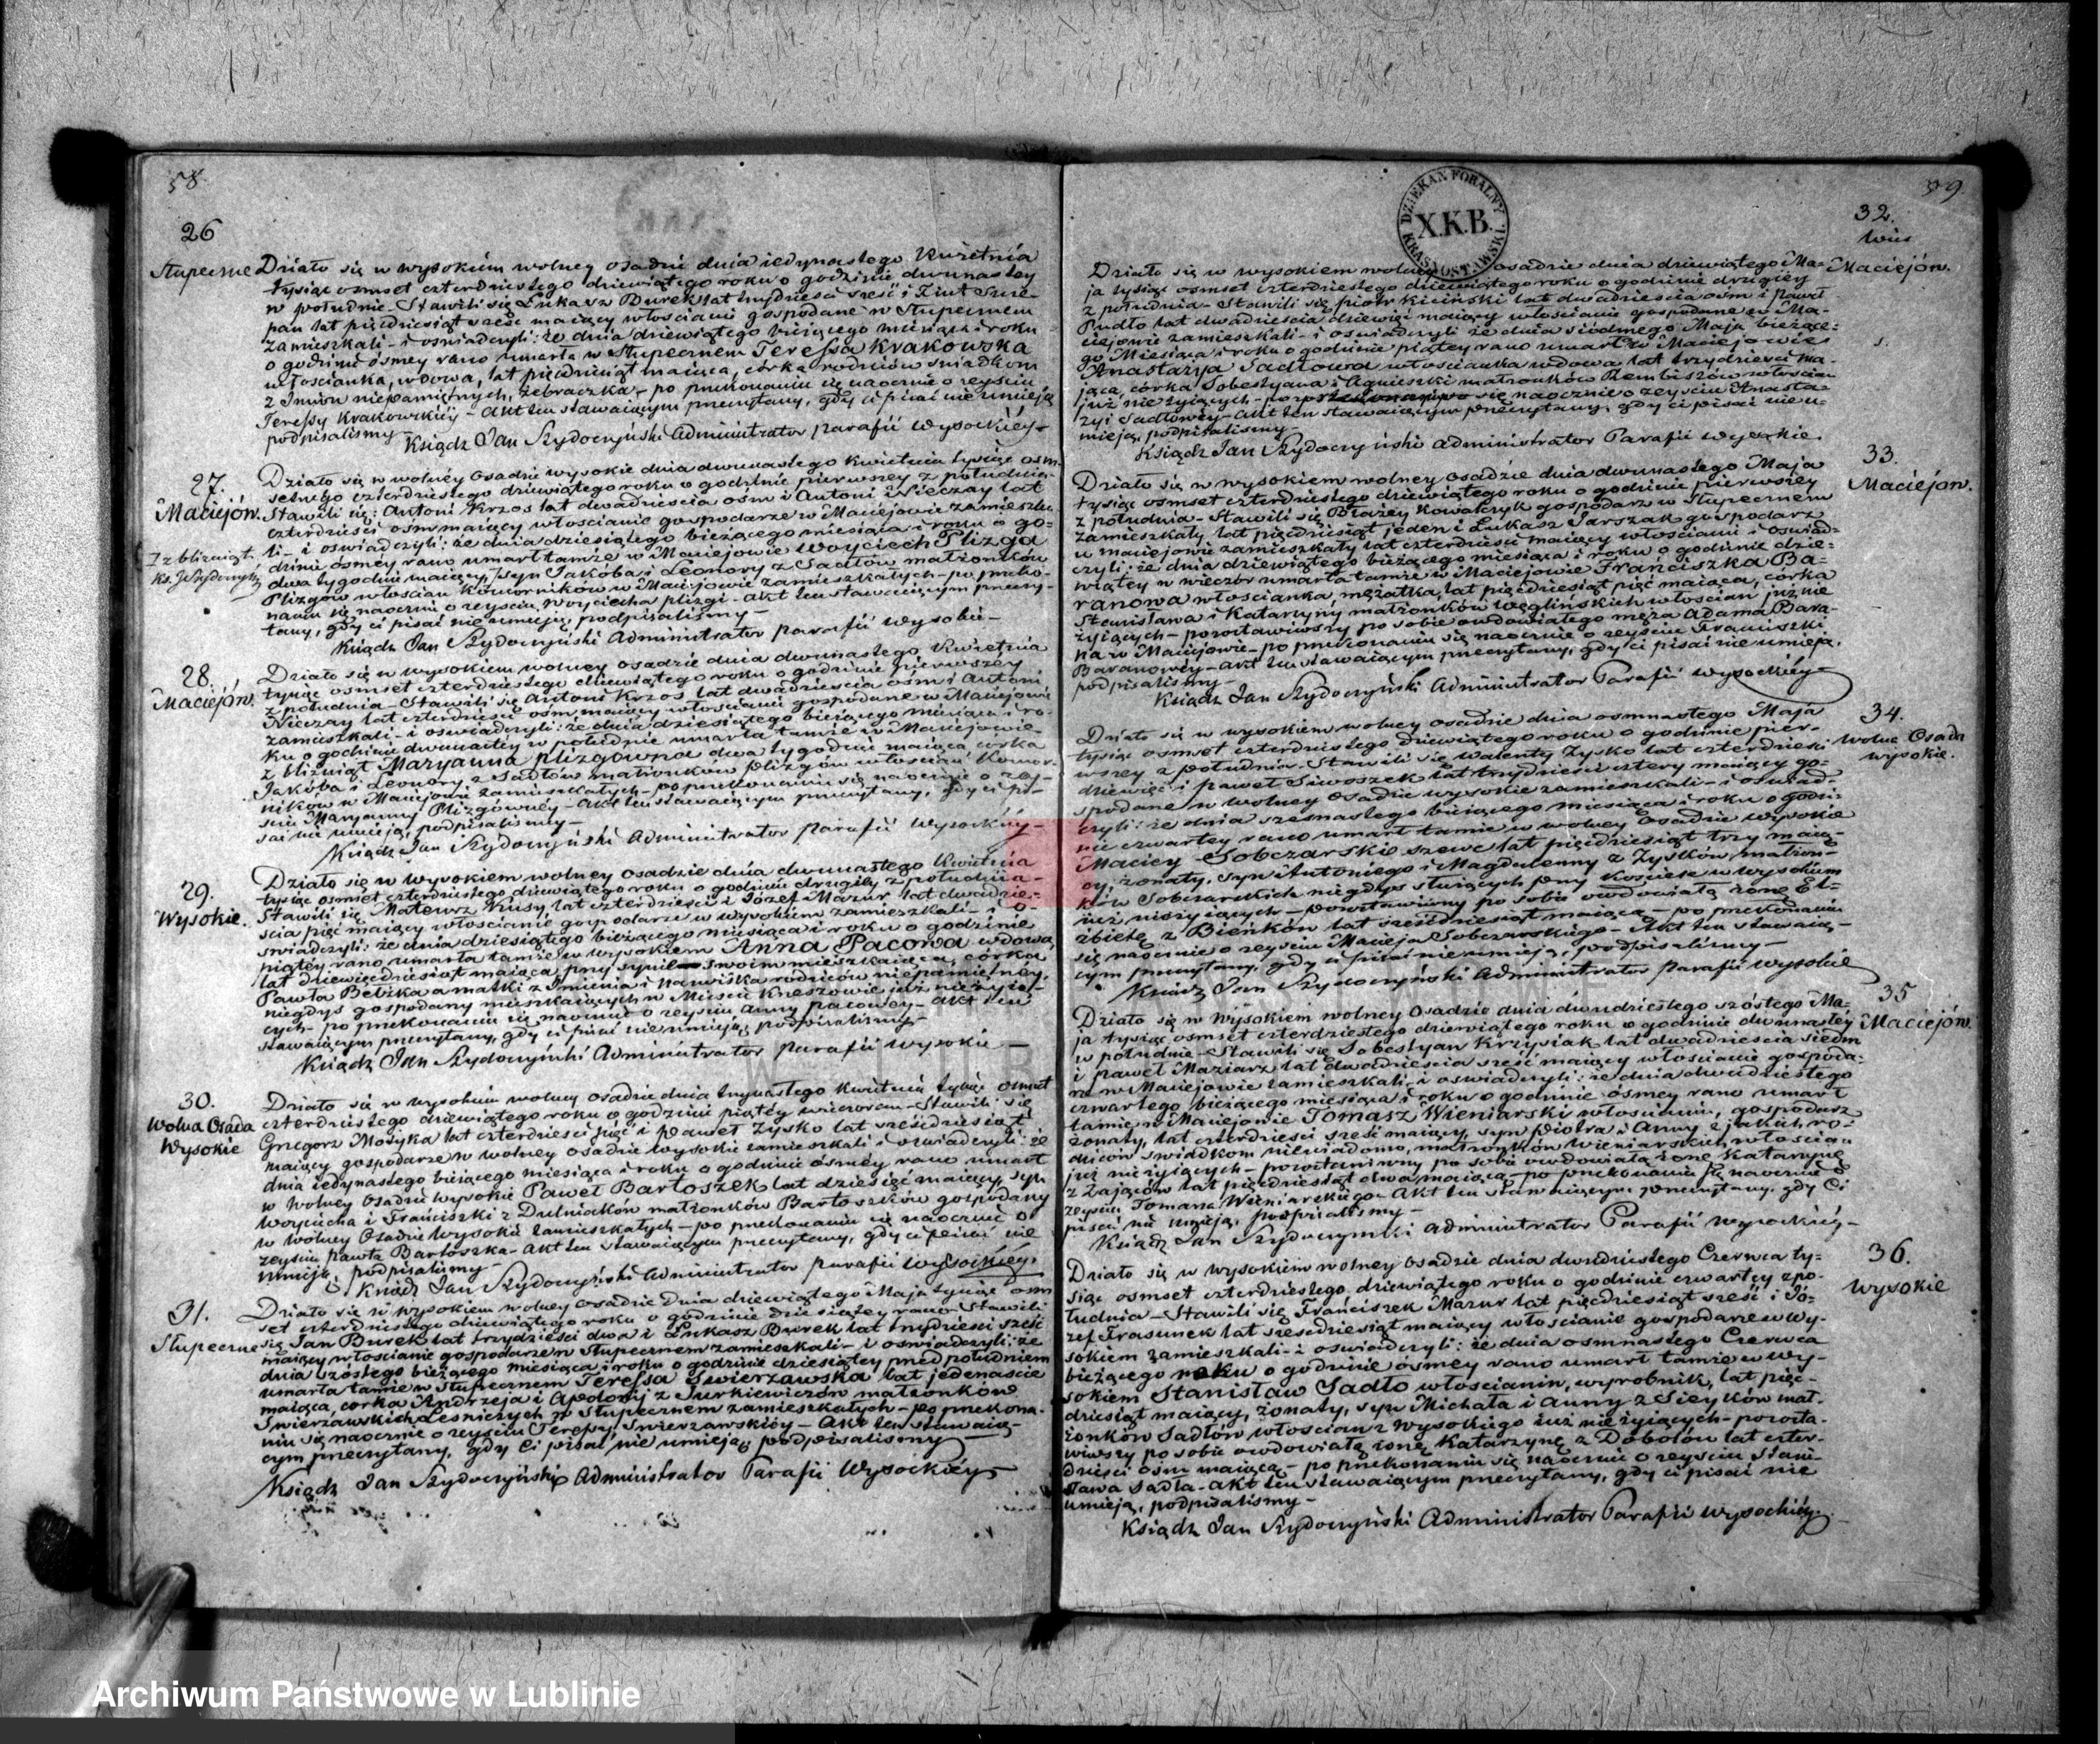 58
26
Słupeczne
Działo się w wysokiem wolney osadzie dnia iedynastego Kwietnia
tysiąc osmset czterdziestego dziewiątego roku o godzinie dwunastey
w południe. Stawili się Łukasz Burek lat trzydzieści sześć i
pan lat pięćdziesiąt sześć maiący włościanie gospodarze w Słupecznem
zamieszkali – i oświadczyli: że dnia dziewiątego bieżącego miesiąca i roku
o godzinie osmey rano umarła w Słupecznem Teressa Krakowska
włościanka, wdowa, lat pięćdziesiąt maiąca, córka rodziców świadkom
z Imion niepamiętnych, żebraczka – po przekonaniu się naocznie o zeyściu
Teressy Krakowskiéy – Akt ten stawaiącym przeczytany, gdy ci pisać nie umieją
podpisaliśmy –
Ksiądz Jan Szydoczyński Administrator parafii Wysockiéy –
27.
Maciejów.
Działo się w wolnéy Osadzie wysokie dnia dwunastego Kwietnia tysiąc osm-
setnego czterdziestego dziewiątego roku o godzinie pierwszey z południa-
Stawili się: Antoni Krzos lat dwadzieścia ośm i Antoni Nieczay lat
czterdzieści osm maiący włościanie gospodarze w Maciejowie zamieszka-
li – i oświadczyli: że dnia dziesiątego bieżącego miesiąca i roku o go-
dzinie ósmey rano umarł tamże w Maciejowie Woyciech Plizga
dwa tygodnie maiący, syn Jakóba i Leonory z Sadłów małżonków
Plizgów włościan Komorników w Maciejowie zamieszkałych – po przeko-
naniu się naocznie o zeyściu Woyciecha Plizgi – Akt ten stawaiącym przeczy-
tany, gdy ci pisać nie umieją, podpisaliśmy –
Ksiądz Jan Szydoczyński Administrator parafii Wysokie –
28.
Maciejów.
Działo się w wysokiem wolney osadzie dnia dwunastego Kwietnia
tysiąc osmset czterdziestego dziewiątego roku o godzinie pierwszey
z południa – Stawili się Antoni Krzos lat dwadzieścia ośm i Antoni
Nieczay lat czterdzieści ośm maiący włościanie gospodarze w Maciejowie
zamieszkali – i oświadczyli: że dnia dziesiątego bieżącego miesiąca i ro-
ku o godzinie dwunastéy w południe umarła tamże w Maciejowie
z bliźniąt Maryanna Plizgówna dwa tygodnie maiąca, córka
Jakóba i Leonory z Sadłów małżonków Plizgów włościan Komor-
ników w Maciejowie zamieszkałych – po przekonaniu się naocznie o zey-
ściu Maryanny Plizgównéy – Akt ten stawaiącym przeczytany, gdy ci pi-
sać nie umieją, podpisaliśmy –
Ksiądz Jan Szydoczyński Administrator parafii Wysockiéy –
29.
Wysokie.
Działo się w wysokiem wolney osadzie dnia dwunastego Kwietnia
tysiąc osmset czterdziestego dziewiątego roku o godzinie drugiéy z południa-
Stawili się Mateusz Kusy lat czterdzieści i Józef Mazur lat dwadzie-
ścia pięć maiący włościanie gospodarze w wysokiem zamieszkali – i o-
świadczyli: że dnia dziesiątego bieżącego miesiąca i roku o godzinie
piątey rano umarła tamże w wysokiem Anna Pacowa wdowa
lat dziewięćdziesiąt maiąca przy synie swoim mieszkaiąca, córka
Pawła Bełżka a matki z Imienia i nazwiska rodziców niepamiętney,
niegdyś gospodarzy mieszkaiących w Mieście Kreszowie już nieżyią-
cych – po przekonaniu się naocznie o zeyściu Anny Pacowey – Akt ten
stawaiącym przeczytany, gdy ci pisać nie umieją, podpisaliśmy –
Ksiądz Jan Szydoczyński Administrator parafii Wysokie –
30.
Wolna Osada
Wysokie
Działo się w wysokiem wolney osadzie dnia trzynastego Kwietnia tysiąc osmset
czterdziestego dziewiątego roku o godzinie piątéy wieczorem – Stawili się
Grzegorz Mosyka lat czterdzieści pięć i Paweł Zyśko lat sześćdziesiąt
maiący gospodarze w wolney osadzie wysokie zamieszkali i oświadczyli: że
dnia iedynastego bieżącego miesiąca i roku o godzinie ósméy rano umarł
w wolney Osadzie Wysokie Paweł Bartoszek lat dziesięć maiący, syn
Woyciecha i Franciszki z Dulniaków małżonków Bartoszków gospodarzy
w wolney Osadzie Wysokie zamieszkałych – po przekonaniu się naocznie o
zeyściu Pawła Bartoszka – Akt ten stawaiącym przeczytany, gdy ci pisać nie
umieją, podpisaliśmy –
Ksiądz Jan Szydoczyński Administrator parafii Wysockiéy.
31.
Słupeczne
Działo się w wysokiem wolney osadzie dnia dziewiątego Maja tysiąc osm
set czterdziestego dziewiątego roku o godzinie dziesiątey rano Stawili
się Jan Burek lat trzydzieści dwa i Łukasz Burek lat trzydzieści sześć
maiący włościanie gospodarze w Słupecznem zamieszkali – i oświadczyli: że
dnia szóstego bieżącego miesiąca i roku o godzinie dziesiątey przed południem
umarła tamże w Słupecznem Teressa Swierzawska lat jedenaście
maiąca, córka Andrzeja i Apolonij z Jurkiewiczów małżonków
Swierzawskich Leśniczych w Słupecznem zamieszkałych – po przekona-
niu się naocznie o zeyściu Teressy Swierzawskiéy – Akt ten stawaią-
cym przeczytany, gdy ci pisać nie umieją, podpisaliśmy
Ksiądz Jan Szydoczyński Administrator Parafii Wysockiéy
59.
DZIEKAN FORALNY
X.K.B.
KRASNOSTAWSKI.
32.
wieś
Maciejów.
Działo się w wysokiem wolney osadzie dnia dziewiątego Ma-
ja tysiąc osmset czterdziestego dziewiątego roku o godzinie drugiéy
z południa – Stawili się Piotr Kiciński lat dwadzieścia osm i Paweł
Pudło lat dwadzieścia dziewięć maiący włościanie gospodarze w Ma-
ciejowie zamieszkali – i oświadczyli że dnia siódmego Maja bieżące-
go Miesiąca i roku o godzinie piątey rano umarła w Maciejowie
Anastazya Sadłowa włościanka wdowa lat trzydzieści ma-
jąca, córka Sobestyana i Agnieszki małżonków Rembiszów włościan
już nieżyiących – po przekonaniu się naocznie o zeyściu Anasta-
zyi Sadłowéy – Akt ten stawaiącym przeczytany, gdy ci pisać nie u-
mieją, podpisaliśmy –
Ksiądz Jan Szydoczyński Administrator Parafii Wysokie.
33.
Maciejów.
Działo się w wysokiem wolney osadzie dnia dwunastego Maja
tysiąc osmset czterdziestego dziewiątego roku o godzinie pierwszéy
z południa – Stawili się Błażéy Kowalczyk gospodarz w Słupecznem
zamieszkały lat pięćdziesiąt jeden i Łukasz Jarszak gospodarz
w Maciejowie zamieszkały lat czterdzieści maiący włościanie i oświad-
czyli: że dnia dziewiątego bieżącego miesiąca i roku o godzinie dzie-
wiątey w wieczór umarła tamże w Maciejowie Franciszka Ba-
ranowa włościanka, mężatka, lat pięćdziesiąt pięć maiąca, córka
Stanisława i Katarzyny małżonków Węglińskich włościan już nie
żyiących – pozostawiwszy po sobie owdowiałego męża Adama Bara-
na w Maciejowie – po przekonaniu się naocznie o zeyściu Franciszki
Baranowéy – Akt ten stawaiącym przeczytany, gdy ci pisać nie umieją,
podpisaliśmy –
Ksiądz Jan Szydoczyński Administrator Parafii Wysockiéy
34.
Wolna Osada
wysokie.
Działo się w wysokiem wolney osadzie dnia osmnastego Maja
tysiąc osmset czterdziestego dziewiątego roku o godzinie pier-
wszey z południa – Stawili się Walenty Zyśko lat czterdzieści
dziewięć i Paweł Siwoszek lat trzydzieści cztery maiący go-
spodarze w wolney Osadzie wysokie zamieszkali – i oświad-
czyli: że dnia szesnastego bieżącego miesiąca i roku o godzi-
nie czwartey rano umarł tamże w wolney Osadzie wysokie
Maciey Sobczarski szewc lat pięćdziesiąt trzy maią-
cy, żonaty, syn Antoniego i Magdaleny z Zysków małżon-
ków Sobczarskich niegdyś służących przy Kościele w wysokiem
już nieżyiących – pozostawiwszy po sobie owdowiałą żonę El-
żbietę z Bieńków lat sześćdziesiąt maiącą – po przekonaniu
się naocznie o zeyściu Macieja Sobczarskiego – Akt ten stawaią-
cym przeczytany, gdy ci pisać nie umieją, podpisaliśmy –
Ksiądz Jan Szydoczyński Administrator parafii Wysokie
35
Maciejów.
Działo się w Wysokiem wolney Osadzie dnia dwudziestego szóstego Ma-
ja tysiąc osmset czterdziestego dziewiątego roku o godzinie dwunastey
w południe – Stawili się Sobestyan Krzysiak lat dwadzieścia siedm
i Paweł Maziarz lat dwadzieścia sześć maiący włościanie gospoda-
rze w Maciejowie zamieszkali, i oświadczyli: że dnia dwudziestego
czwartego bieżącego miesiąca i roku o godzinie ósmey rano umarł
tamże w Maciejowie Tomasz Wieniarski włościanin, gospodarz
żonaty, lat czterdzieści sześć maiący, syn Piotra i Anny z jakich ro-
dziców świadkom niewiadomo, małżonków Wieniarskich włościan
już nieżyiących – pozostawiwszy po sobie owdowiałą żonę Katarzynę
z Zająców lat pięćdziesiąt dwa maiącą – po przekonaniu się naocznie o
zeyściu Tomasza Wieniarskiego – Akt ten stawaiącym przeczytany, gdy ci
pisać nie umieją, podpisaliśmy –
Ksiądz Jan Szydoczyński Administrator Parafii Wysockiéy –
36.
Wysokie
Działo się w wysokiem wolney Osadzie dnia dwudziestego Czerwca ty-
siąc osmset czterdziestego dziewiątego roku o godzinie czwartey z po-
łudnia – Stawili się Franciszek Mazur lat pięćdziesiąt sześć i Jó-
zef Trasunek lat sześćdziesiąt maiący włościanie gospodarze w Wy-
sokiem zamieszkali – i oświadczyli: że dnia osmnastego Czerwca
bieżącego roku o godzinie ósmey rano umarł tamże w Wy-
sokiem Stanisław Sadło włościanin, wyrobnik, lat pięć-
dziesiąt maiący, żonaty, syn Michała i Anny z Sieyków mał-
żonków Sadłów włościan z Wysokiego już nieżyiących – pozosta-
wiwszy po sobie owdowiałą żonę Katarzynę z Dobołów lat czter-
dzieści ośm maiącą – po przekonaniu się naocznie o zeyściu Stani-
sława Sadła – Akt ten stawaiącym przeczytany, gdy ci pisać nie
umieją, podpisaliśmy –
Ksiądz Jan Szydoczyński Administrator Parafii Wysockiéy.
Archiwum Państwowe w Lublinie